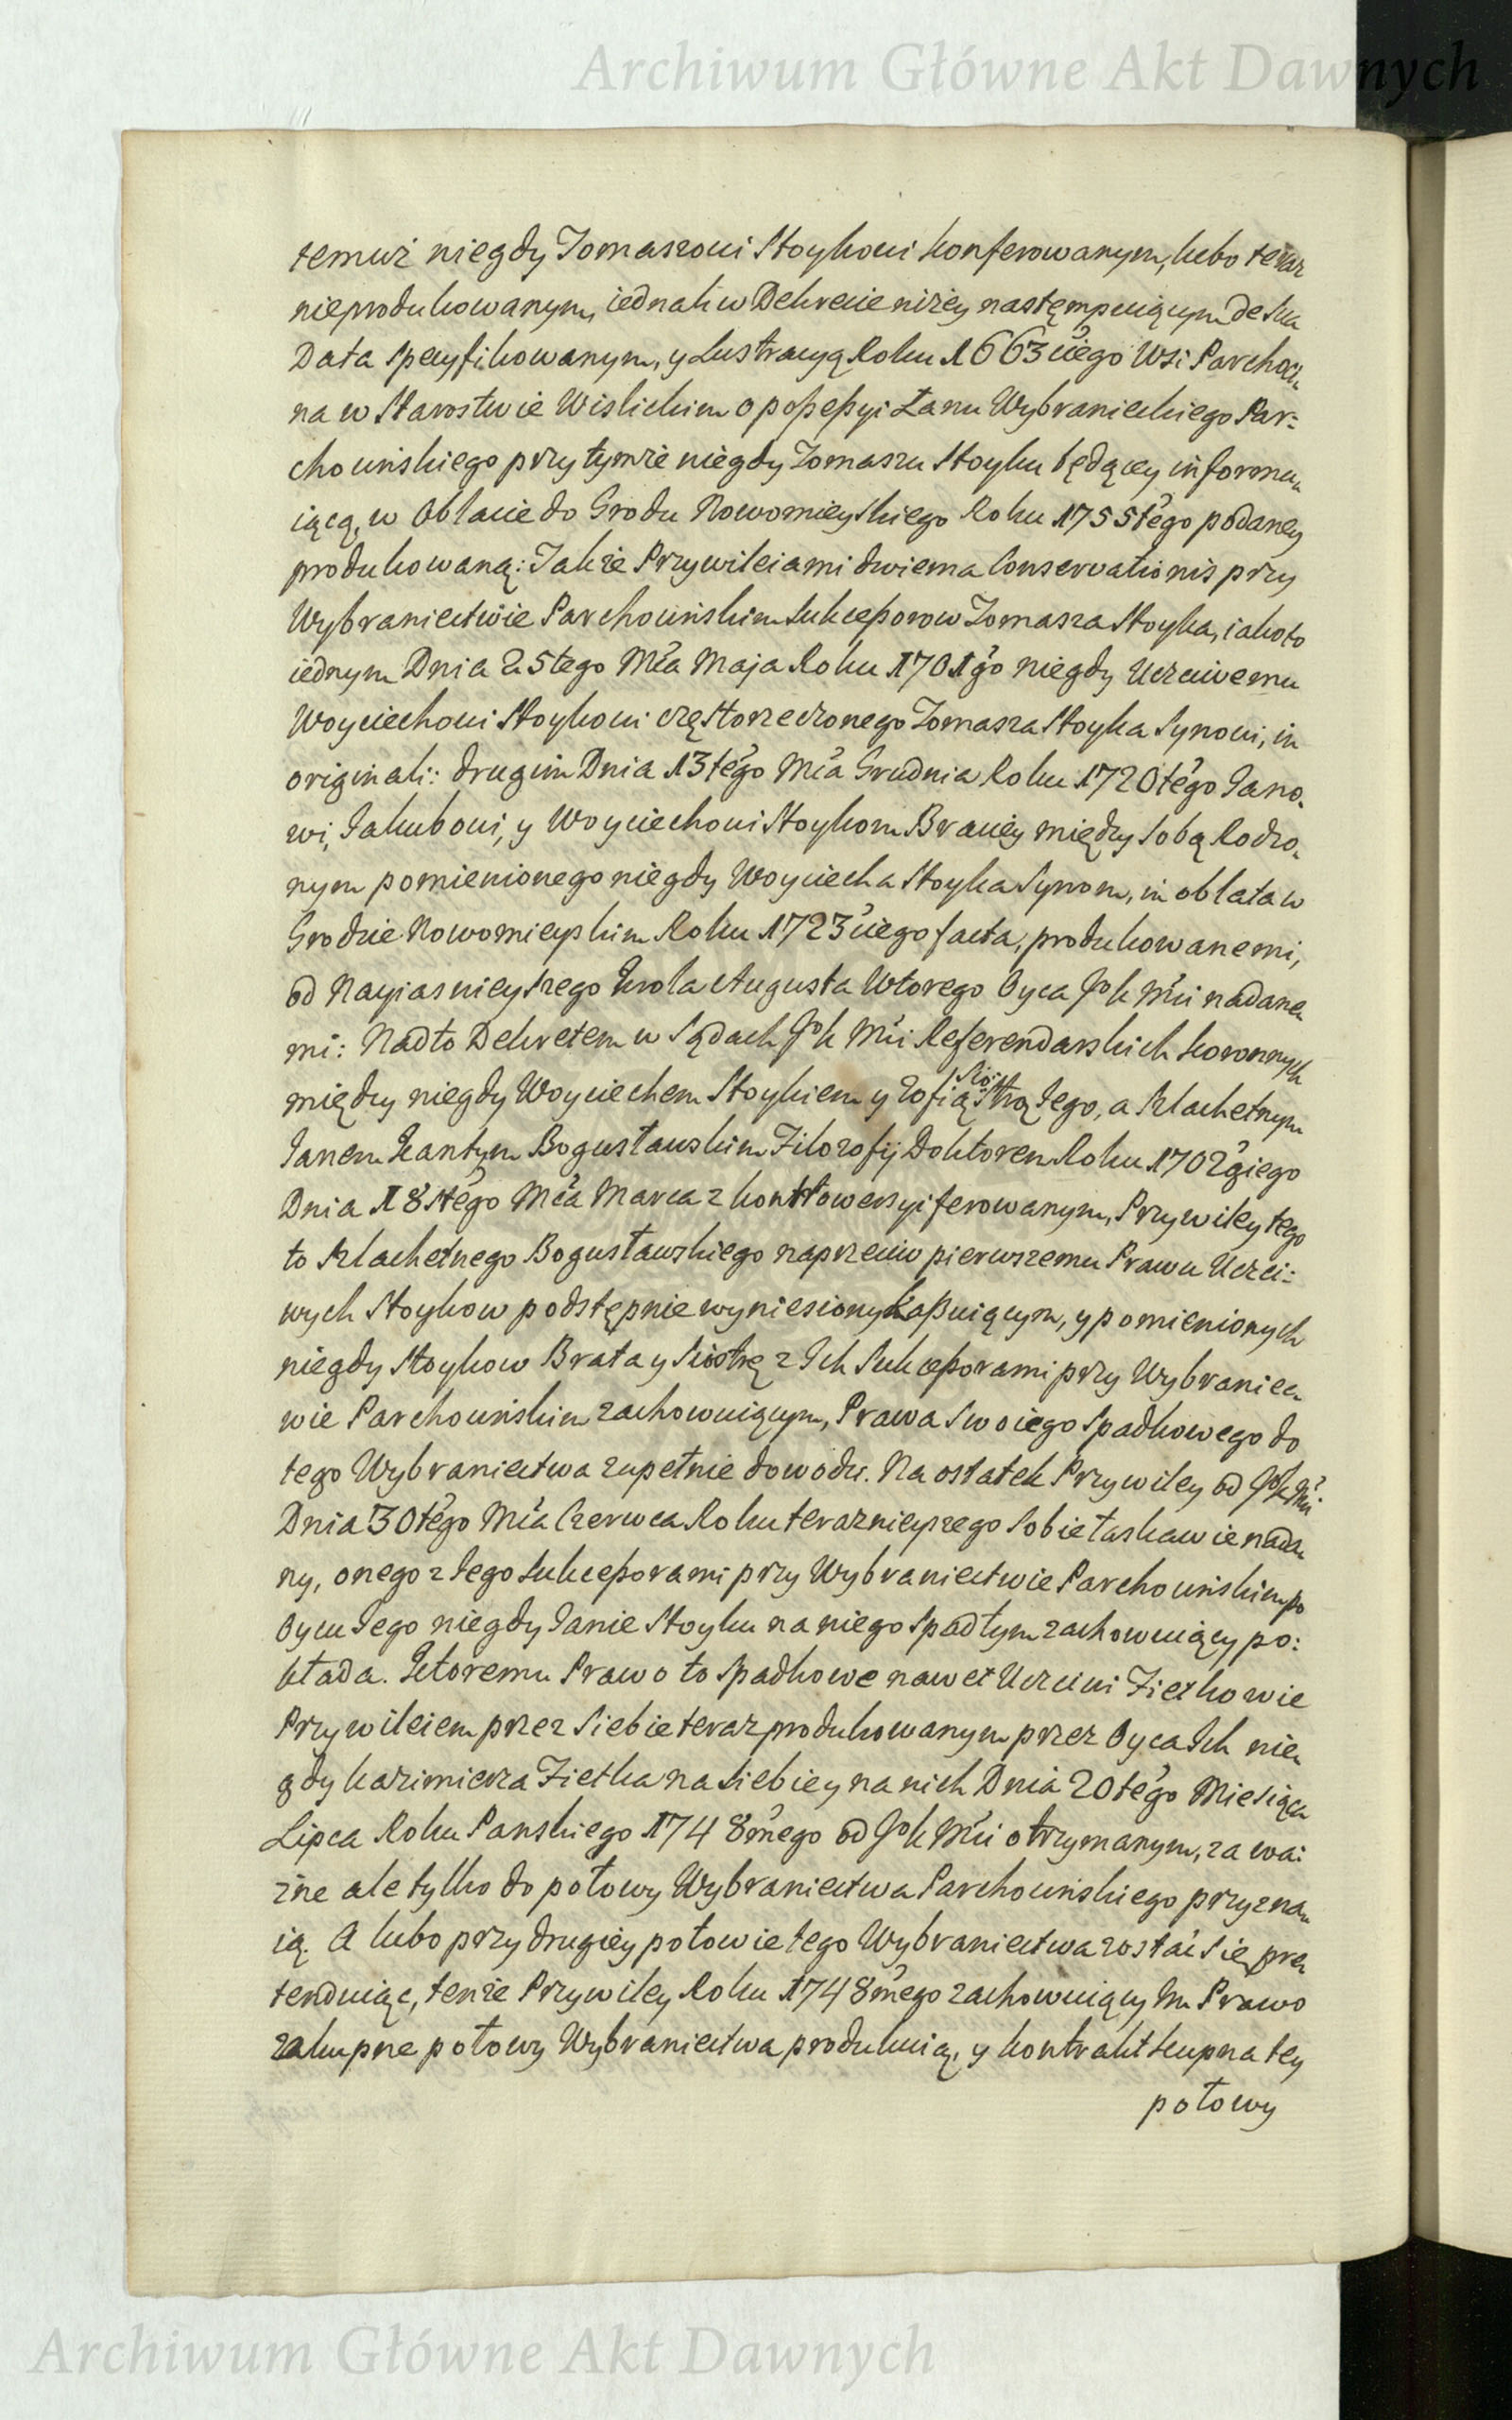 Archiwum Główne Akt Dawnych
temuż niegdy Tomaszowi Stoykowi konferowanym, lubo teraz
nieprodukowanym, iednak w Dekrecie niżey następuiącym de sua
Data specyfikowanym, y Lustracyą Roku 1663ciego Wsi Parchoci„
na w Starostwie Wislickim o possessyi Łanu Wybranieckiego Par:
chocińskiego przy tymże niegdy Tomaszu Stoyku będącey informu„
iącą, w Oblacie do Grodu Nowomieyskiego Roku 1755tego podaney
produkowaną: Także Przywileiami dwiema Conservationis przy
Wybraniectwie Parchocińskim Sukcessorow Tomasza Stoyka, iako to
iednym Dnia 25tego Mca Maja Roku 1701go niegdy Uczciwemu
Woyciechowi Stoykowi częstorzeczonego Tomasza Stoyka Synowi, in
originali: drugim Dnia 13tego Mca Grudnia Roku 1720tego Jano„
wi, Jakubowi, y Woyciechowi Stoykom Braciey między sobą Rodzo„
nym pomienionego niegdy Woyciecha Stoyka Synom, in oblata w
Grodzie Nowomieyskim Roku 1723ciego facta, produkowanemi,
od Nayiasnieyszego Krola Augusta Wtorego Oyca JoK Mci nadane„
mi: Nadto Dekretem w Sądach JoK Mci Referendarskich Koronnych
między niegdy Woyciechem Stoykiem y Zofią Sio:strą Jego, a Szlachetnym
Janem Kantym Bogusławskim Filozofij Doktorem Roku 1702giego
Dnia 18stego Mca Marca z kontrowersyi ferowanym, Przywiley tego
to Szlachetnego Bogusławskiego naprzeciw pierwszemu Prawu Uczci:
wych Stoykow podstępnie wyniesiony kassuiącym, y pomienionych
niegdy Stoykow Brata y Siostrę z Ich Sukcessorami przy Wybraniec„
wie Parchocińskim zachowuiącym, Prawa swoiego Spadkowego do
tego Wybraniectwa zupełnie dowodzi. Na ostatek Przywiley od JoK Mci
Dnia 30tego Mca Czerwca Roku teraznieyszego Sobie łaskawie nada„
ny, onego z Jego Sukcessorami przy Wybraniectwie Parchocińskim po
Oycu Jego niegdy Janie Stoyku na niego spadłym zachowuiący po:
kłada. Ktoremu Prawo to Spadkowe nawet Uczciwi Zietkowie
Przywileiem przez Siebie teraz produkowanym przez Oyca Ich nie„
gdy Kazimierza Zietka na Siebie y na nich Dnia 20tego Miesiąca
Lipca Roku Panskiego 1748mego od JoK Mci otrzymanym, za wa:
żne ale tylko do połowy Wybraniectwa Parchocińskiego przyzna„
ią. A lubo przy drugiey połowie tego Wybraniectwa zostać się pre„
tenduiąc, tenże Przywiley Roku 1748mego zachowuiący Im Prawo
zakupne połowy Wybraniectwa produkuią, y kontrakt kupna tey
połowy
Archiwum Główne Akt Dawnych